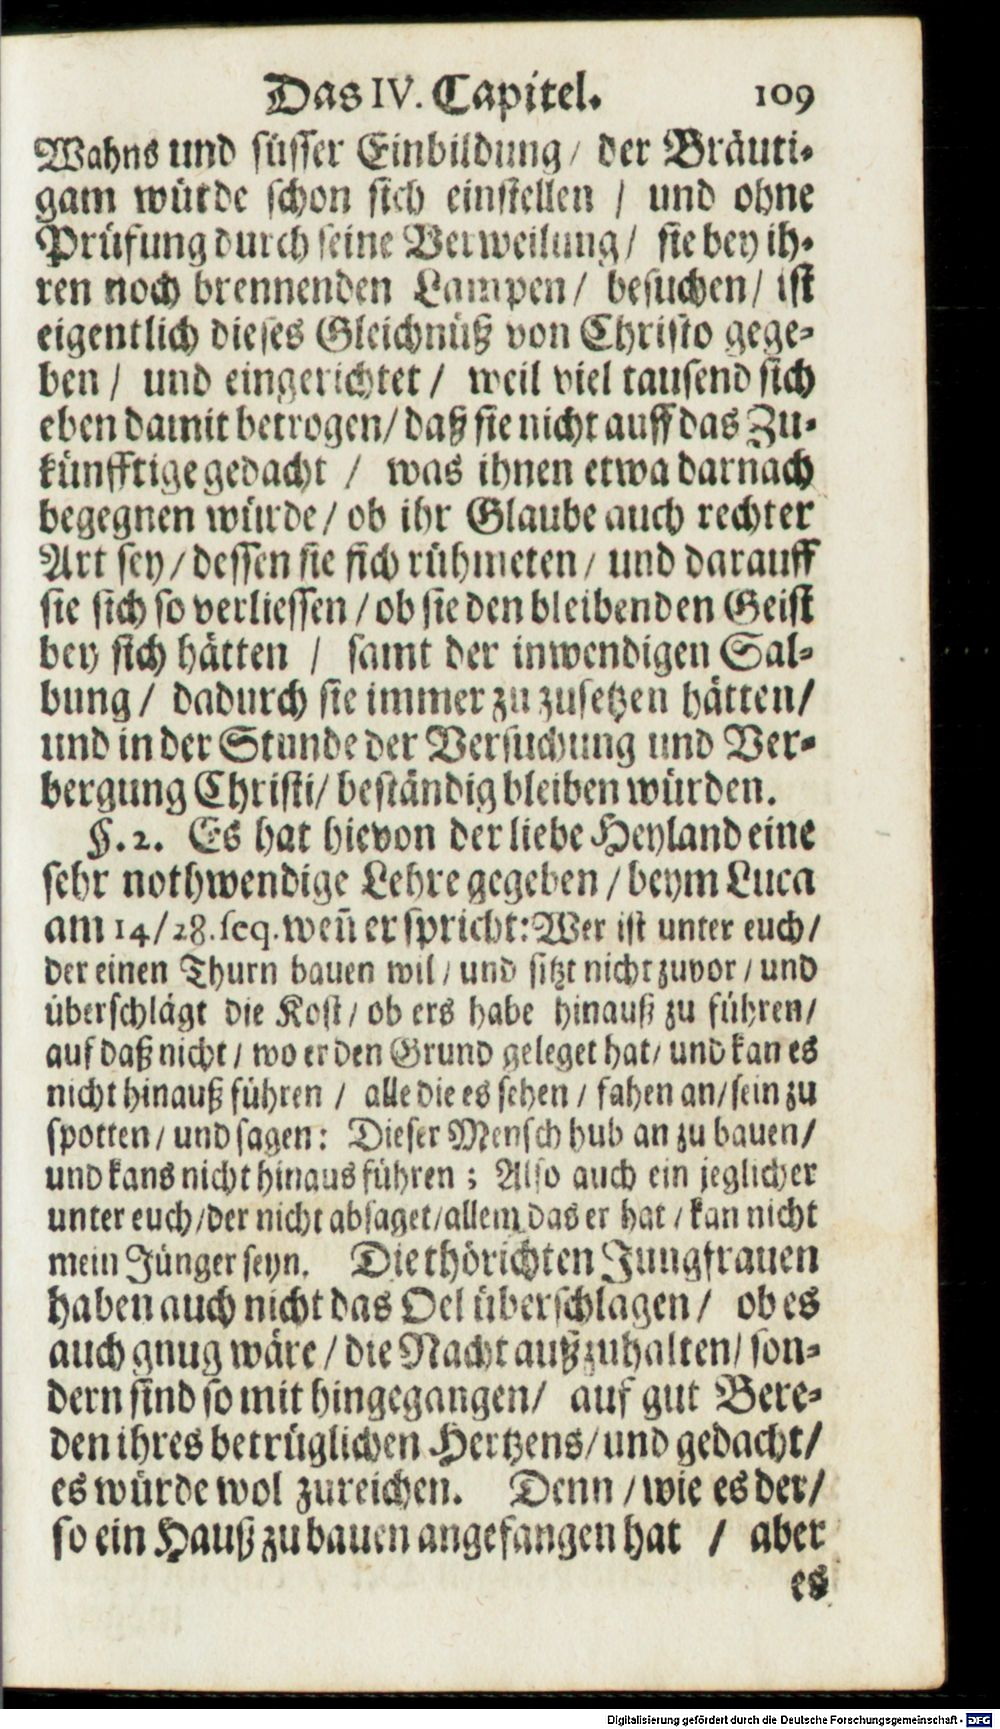 Das IV. Capitel. 109
Wahns und süsser Einbildung / der Bräuti-
gam würde schon sich einstellen / und ohne
Prüfung durch seine Verweilung / sie bey ih-
ren noch brennenden Lampen / besuchen / ist
eigentlich dieses Gleichnüß von Christo gege-
ben / und eingerichtet / weil viel tausend sich
eben damit betrogen / daß sie nicht auff das Zu-
künfftige gedacht / was ihnen etwa darnach
begegnen würde / ob ihr Glaube auch rechter
Art sey / dessen sie sich rühmeten / und darauff
sie sich so verliessen / ob sie den bleibenden Geist
bey sich hätten / samt der inwendigen Sal-
bung / dadurch sie immer zu zusetzen hätten /
und in der Stunde der Versuchung und Ver-
bergung Christi / beständig bleiben würden.
§. 2. Es hat hievon der liebe Heyland eine
sehr nothwendige Lehre gegeben / beym Luca
am 14 / 28. seq. weñ er spricht: Wer ist unter euch /
der einen Thurn bauen wil / und sitzt nicht zuvor / und
überschlägt die Kost / ob ers habe hinauß zu führen /
auf daß nicht / wo er den Grund geleget hat / und kan es
nicht hinauß führen / alle die es sehen / fahen an / sein zu
spotten / und sagen: Dieser Mensch hub an zu bauen /
und kans nicht hinaus führen ; Also auch ein jeglicher
unter euch / der nicht absaget / allem das er hat / kan nicht
mein Jünger seyn. Die thörichten Jungfrauen
haben auch nicht das Oel überschlagen / ob es
auch gnug wäre / die Nacht außzuhalten / son-
dern sind so mit hingegangen / auf gut Bere-
den ihres betrüglichen Hertzens / und gedacht /
es würde wol zureichen. Denn / wie es der /
so ein Hauß zu bauen angefangen hat / aber
es
Digitalisierung gefördert durch die Deutsche Forschungsgemeinschaft - DFG